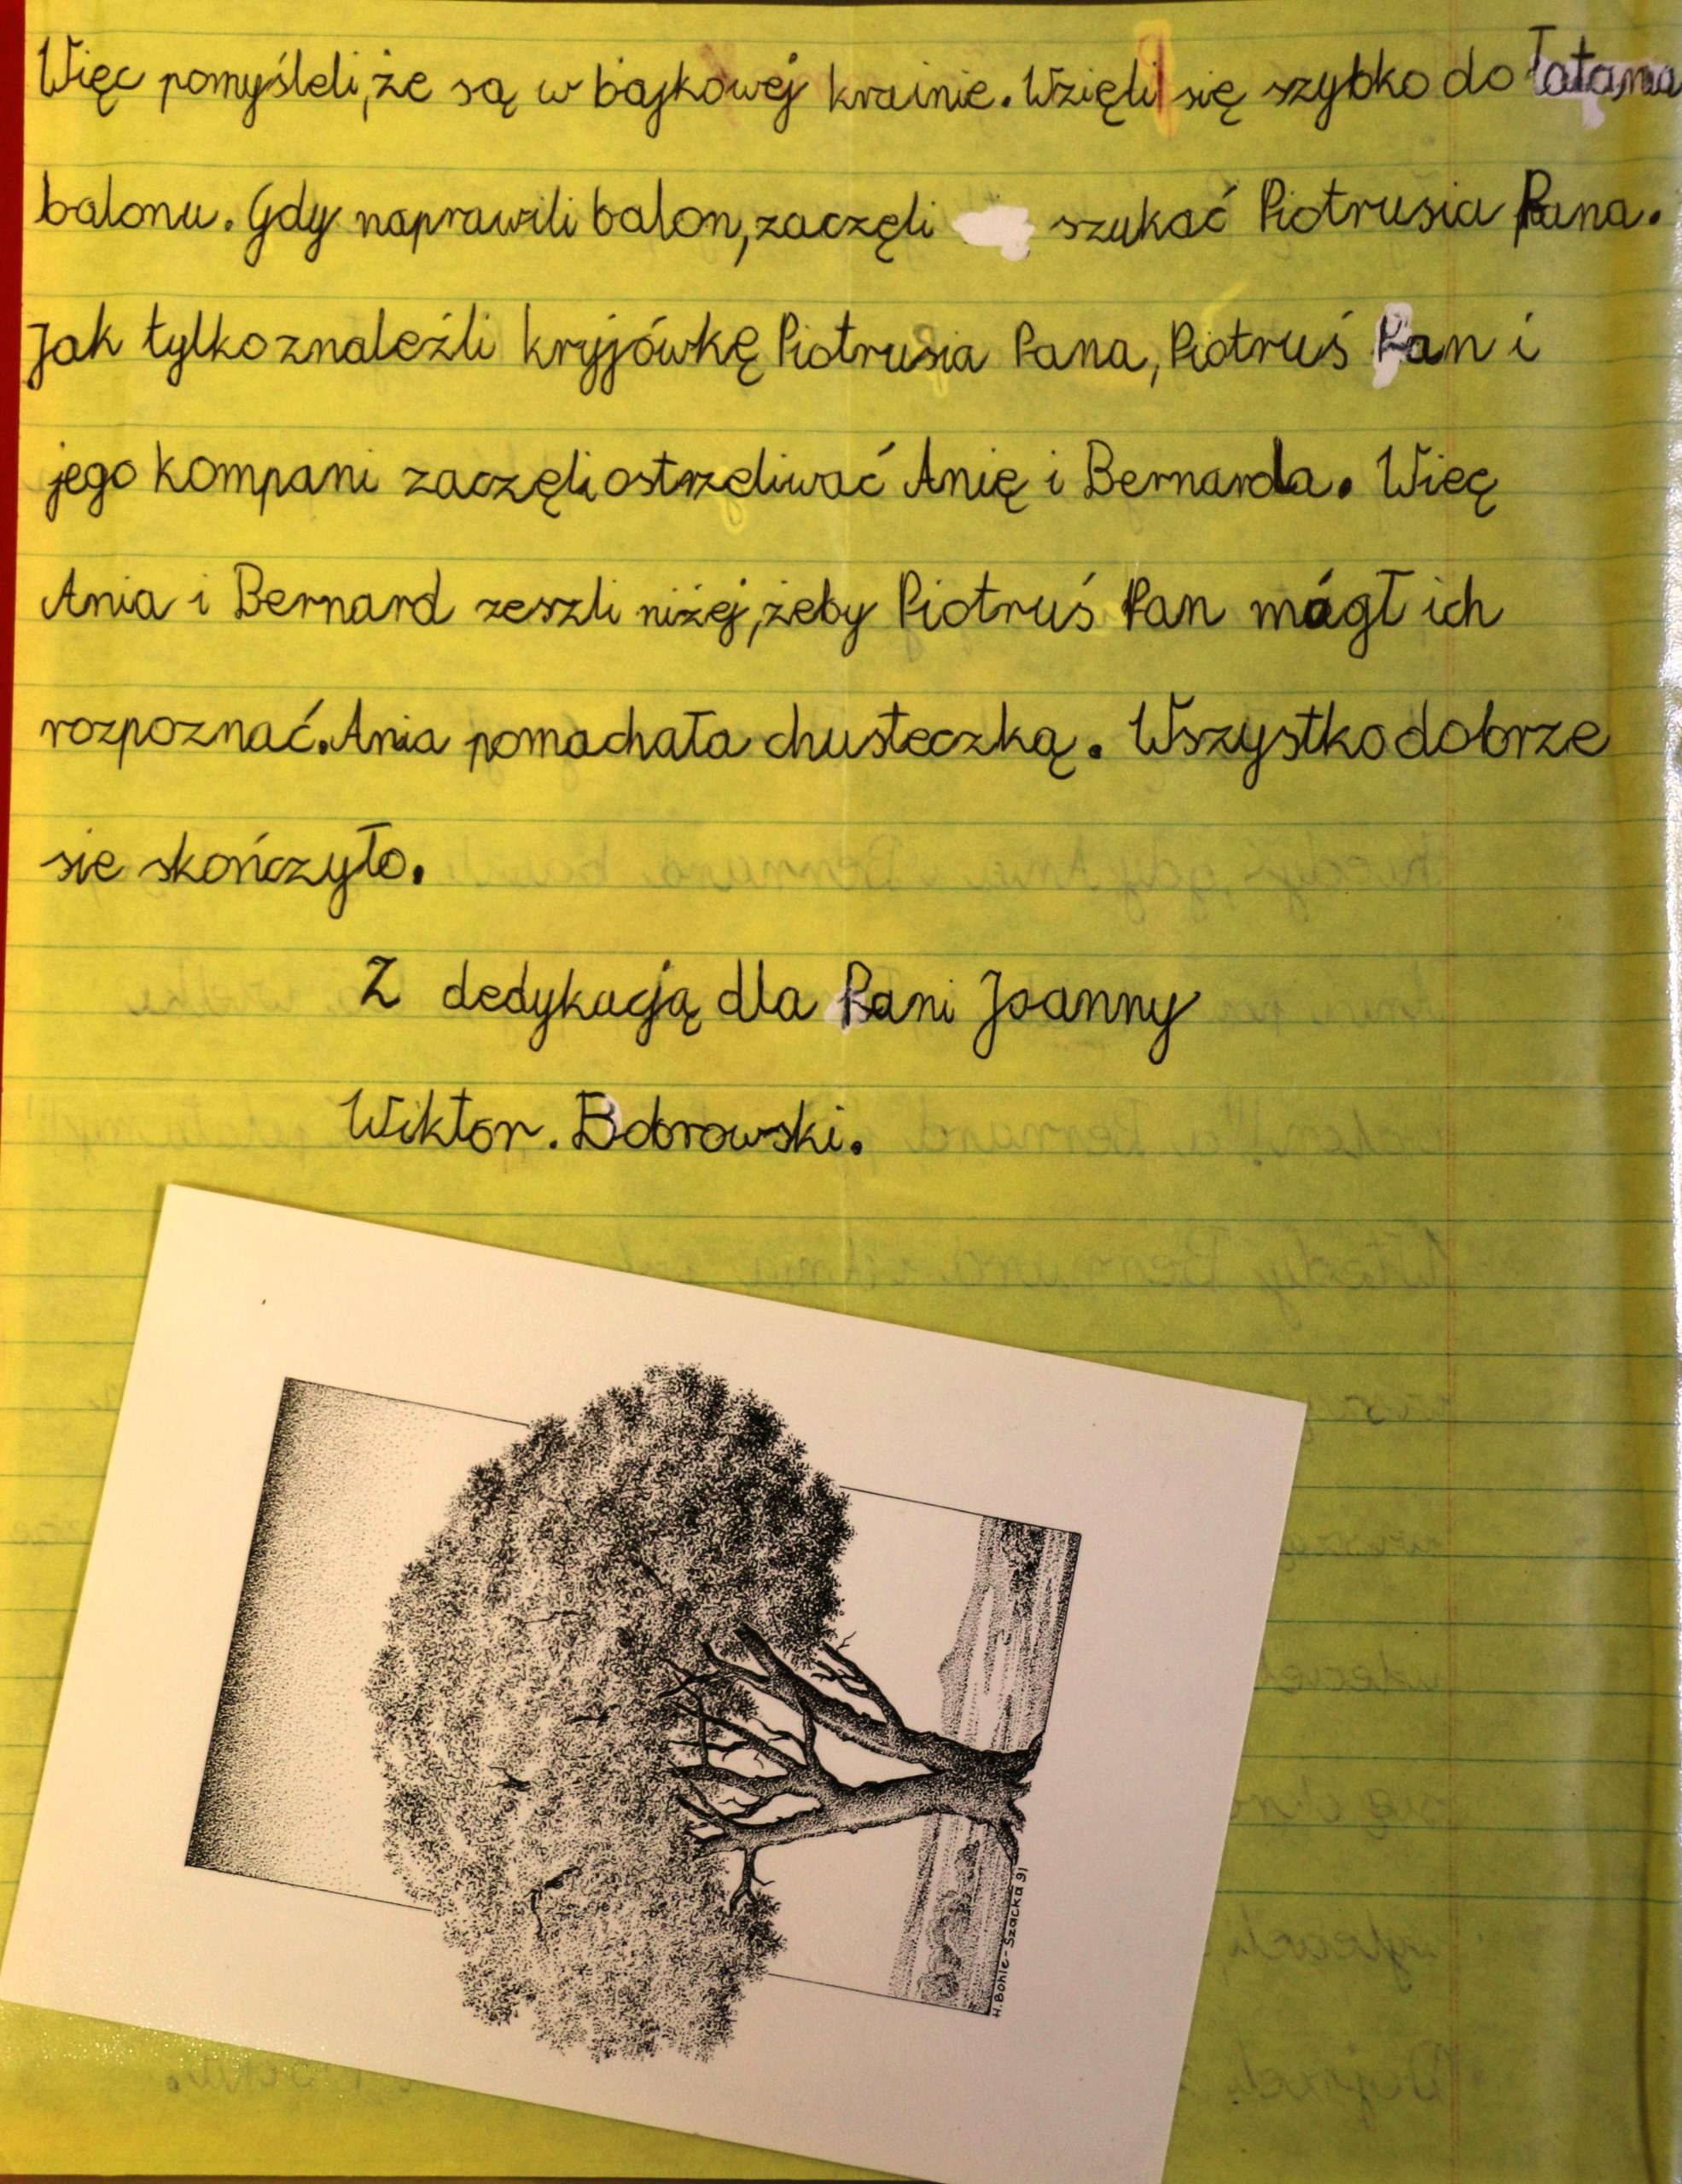 Więc pomyśleli, że są w bajkowej krainie. Wzięli się szybko do łatania
balonu. Gdy naprawili balon, zaczęli szukać Piotrusia Pana.
Jak tylko znaleźli kryjówkę Piotrusia Pana, Piotruś Pan i
jego kompani zaczęli ostrzeliwać Anię i Bernarda. Więę
Ania i Bernard zeszli niżej, żeby Piotruś Pan mógł ich
rozpoznać. Ania pomachała chusteczką. Wszystko dobrze
sie skończyło.
Z dedykacją dla Pani Joanny
Wiktor. Bobrowski.
H. Bohle-Szacka 91